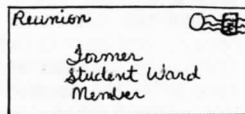 Reunion
Former
Student Ward
Member